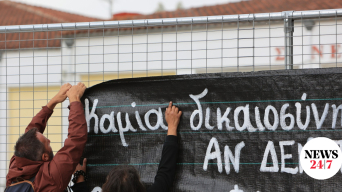 Καμία δικαιοσύνη
ΑΝ ΔΕΝ
NEWS
24/7